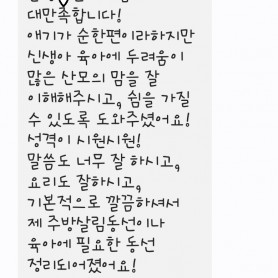 대만족합니다!
애기가 순한편이라하지만
신생아 육아에 두려움이
많은 산모의 맘을 잘
이해해주시고, 쉼을 가질
수 있도록 도와주셨어요!
성격이 시원시원!
말씀도 너무 잘 하시고,
요리도 잘하시고,
기본적으로 깔끔하셔서
제 주방살림동선이나
육아에 필요한 동선
정리되어졌어요!